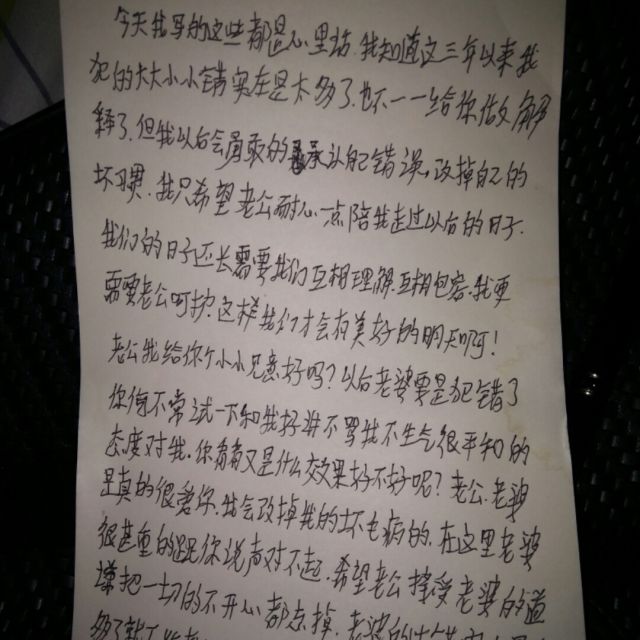 今天我写的这些都是心里话.我知道这三年以来我
犯的大大小小错实在是太多了.也不一一给你做解
释了.但我以后会勇敢的承认自己错误,改掉自己的
坏习惯.我只希望老公耐心一点陪我走过以后的日子.
我们的日子还长需要我们互相理解互相包容.我更
需要老公呵护.这样我们才会有美好的明天啊!
老公我给你个小小见意好吗?以后老婆要是犯错了
你何不常试一下和我好讲不骂我不生气很平和的
态度对我.你看看又是什么效果好不好呢?老公.老婆
是真的很爱你.我会改掉我的坏毛病的.在这里老婆
很甚重的跟你说声对不起.希望老公接受老婆的道
谦把一切的不开心都忘掉.老婆的